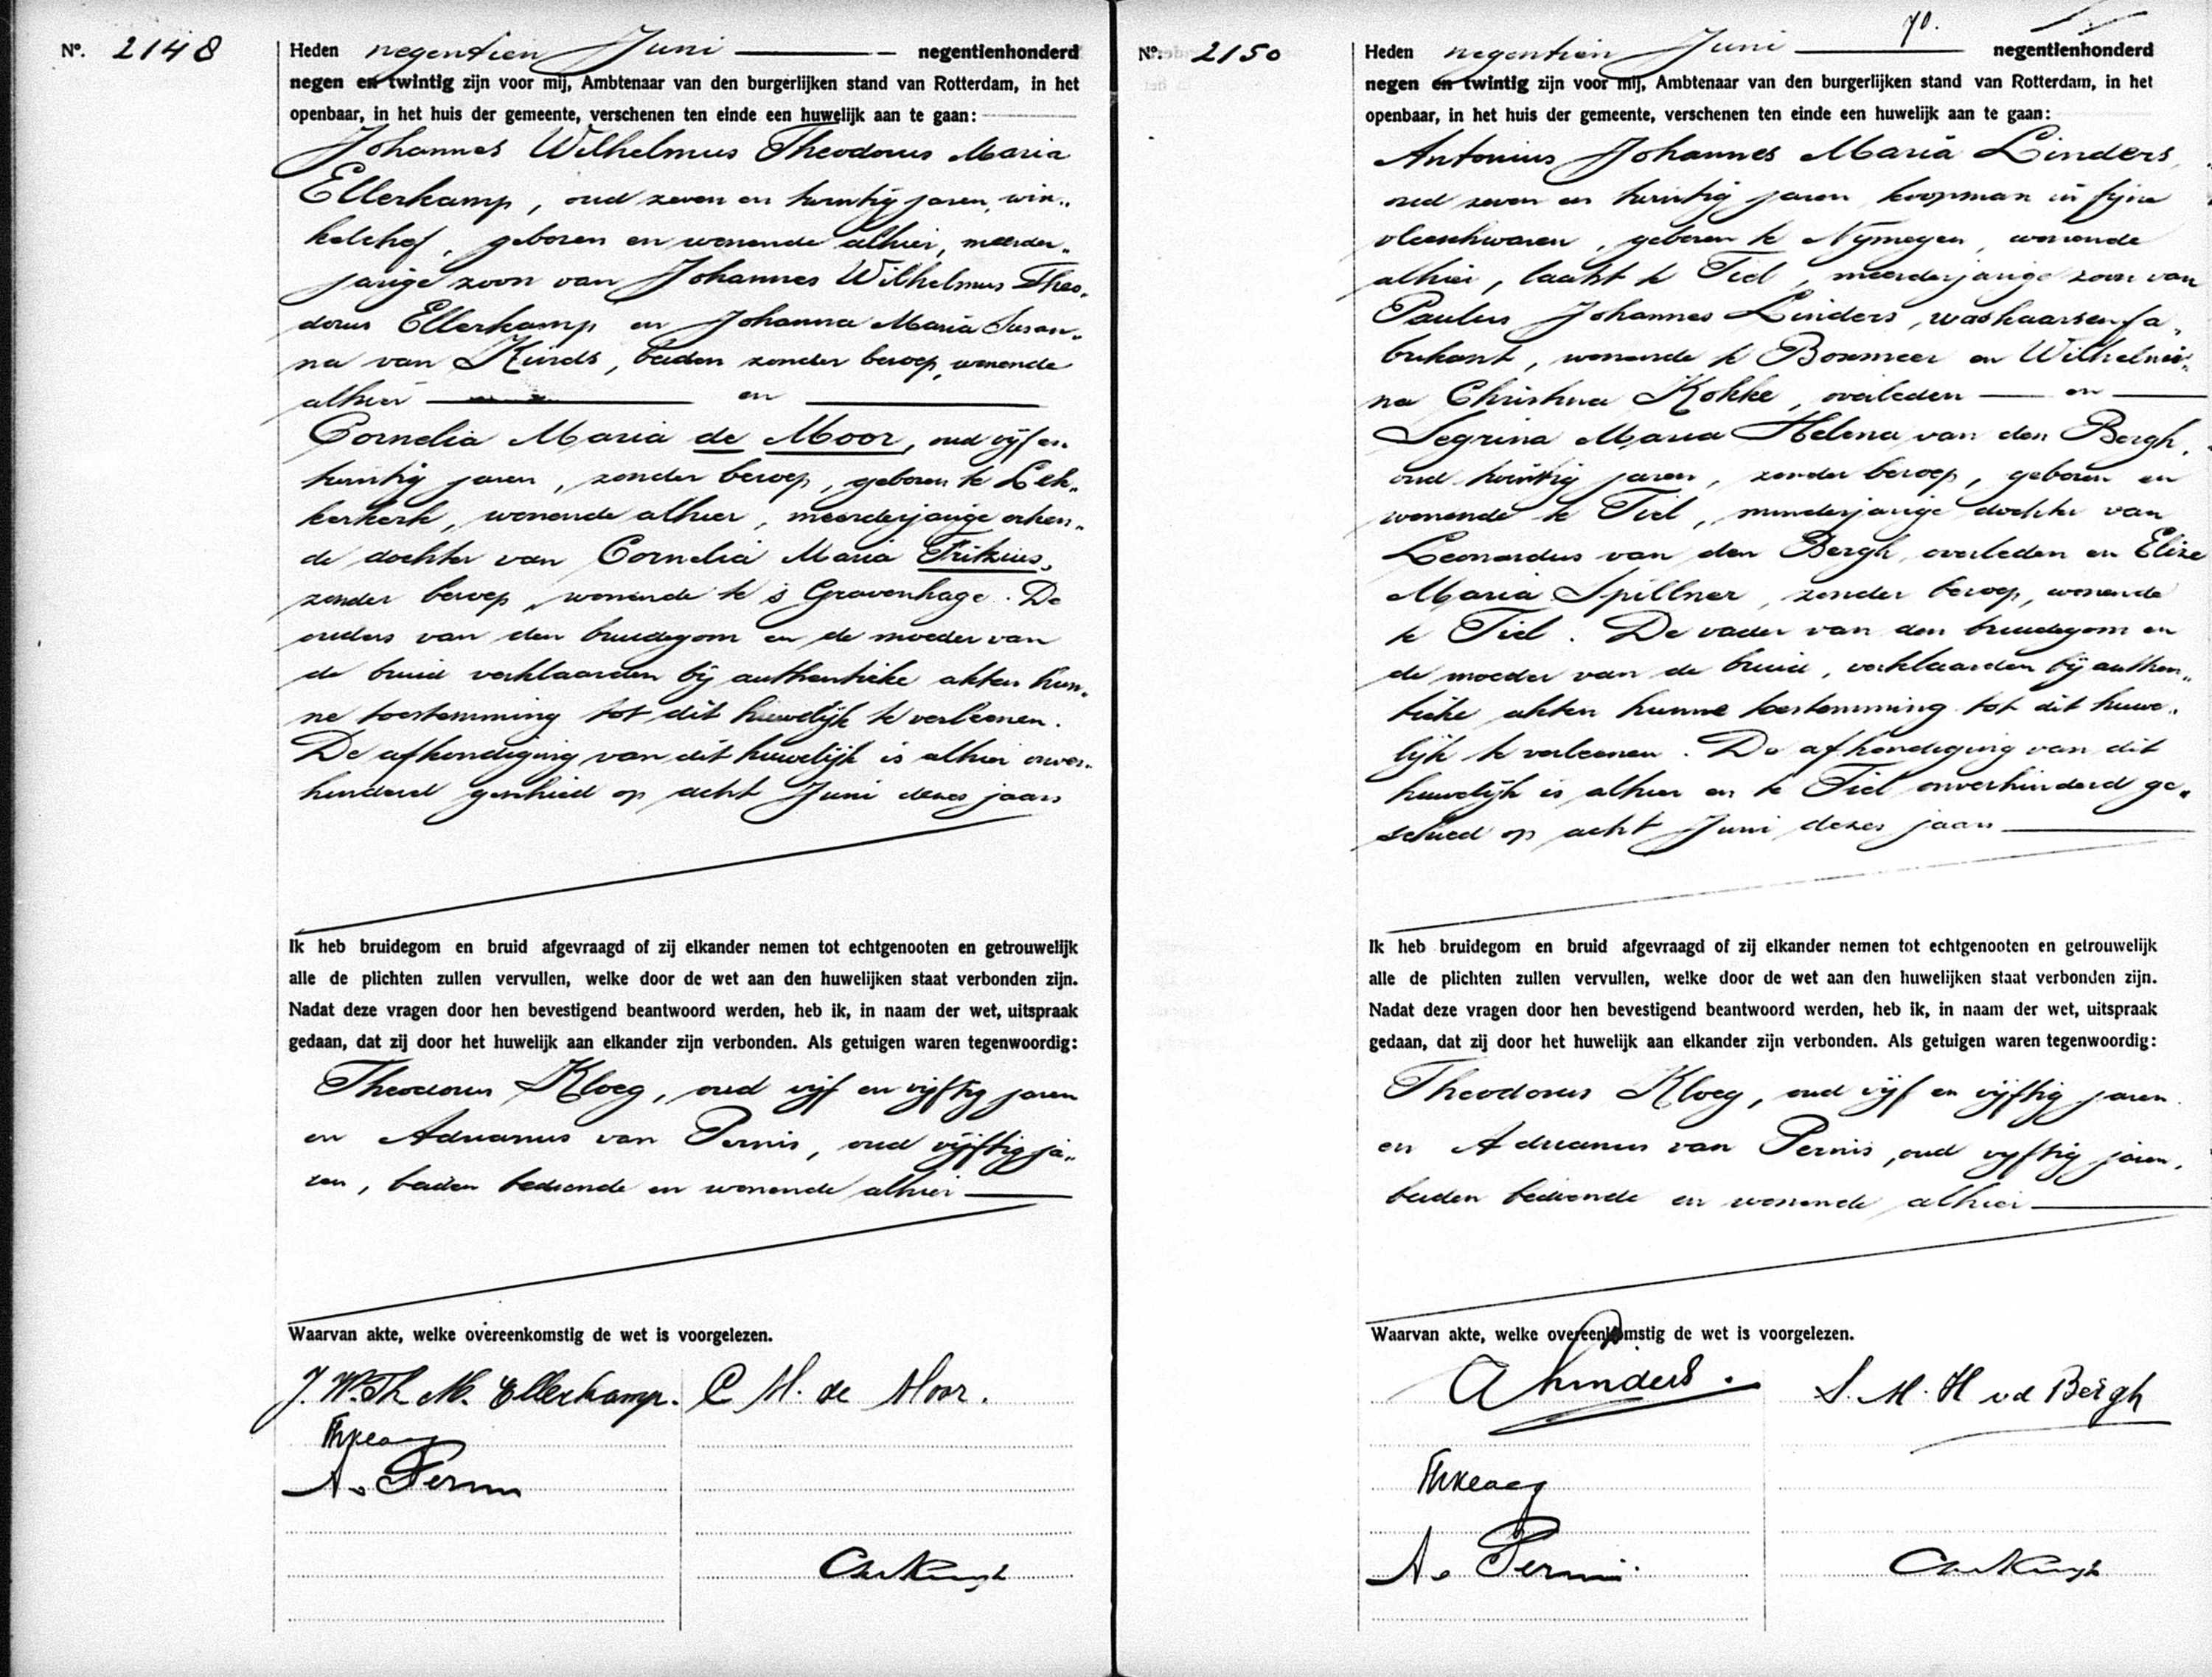 Nº. 2148
Heden negentien Juni negentienhonderd
negen en twintig zijn voor mij, Ambtenaar van den burgerlijken stand van Rotterdam, in het
openbaar, in het huis der gemeente, verschenen ten einde een huwelijk aan te gaan:
Johannes Wilhelmus Theodorus Maria
Ellerkamp, oud zeven en twintig jaren, win„
kelchef, geboren en wonende alhier, meerder„
jarige zoon van Johannes Wilhelmus Theo„
dorus Ellerkamp en Johanna Maria Susan„
na van Kinds, beiden zonder beroep, wonende
alhier en
Cornelia Maria de Moor, oud vijf en
twintig jaren, zonder beroep, geboren te Lek„
kerkerk, wonende alhier, meerderjarige erken„
de dochter van Cornelia Maria Frikius,
zonder beroep, wonende te 's Gravenhage. De
ouders van den bruidegom en de moeder van
de bruid verklaarden bij authentieke akten hun„
ne toestemming tot dit huwelijk te verleenen.
De afkondiging van dit huwelijk is alhier onver„
hinderd geschied op acht Juni dezes jaars
Ik heb bruidegom en bruid afgevraagd of zij elkander nemen tot echtgenooten en getrouwelijk
alle de plichten zullen vervullen, welke door de wet aan den huwelijken staat verbonden zijn.
Nadat deze vragen door hen bevestigend beantwoord werden, heb ik, in naam der wet, uitspraak
gedaan, dat zij door het huwelijk aan elkander zijn verbonden. Als getuigen waren tegenwoordig:
Theodorus Kloeg, oud vijf en vijftig jaren
en Adrianus van Pernis, oud vijftig ja„
ren, beiden bediende en wonende alhier
Waarvan akte, welke overeenkomstig de wet is voorgelezen.
J. W. Th. M. Ellerkamp. C M. de Moor.
ThKloeg
A. v Pernis
Nº. 2150
70.
Heden negentien Juni negentienhonderd
negen en twintig zijn voor mij, Ambtenaar van den burgerlijken stand van Rotterdam, in het
openbaar, in het huis der gemeente, verschenen ten einde een huwelijk aan te gaan:
Antonius Johannes Maria Linders,
oud zeven en twintig jaren koopman in fijne
vleeschwaren, geboren te Nijmegen, wonende
alhier, laatst te Tiel, meerderjarige zoon van
Paulus Johannes Linders, waskaarsenfa„
brikant, wonende te Boxmeer en Wilhelmi„
na Christina Kokke, overleden en
Segrina Maria Helena van den Bergh,
oud twintig jaren, zonder beroep, geboren en
wonende te Tiel, minderjarige dochter van
Leonardus van den Bergh, overleden en Elize
Maria Spillner, zonder beroep, wonende
te Tiel. De vader van den bruidegom en
de moeder van de bruid, verklaarden bij authen„
tieke akten hunne toestemming tot dit huwe„
lijk te verleenen. De afkondiging van dit
huwelijk is alhier en te Tiel onverhinderd ge„
schied op acht Juni dezes jaars
Ik heb bruidegom en bruid afgevraagd of zij elkander nemen tot echtgenooten en getrouwelijk
alle de plichten zullen vervullen, welke door de wet aan den huwelijken staat verbonden zijn.
Nadat deze vragen door hen bevestigend beantwoord werden, heb ik, in naam der wet, uitspraak
gedaan, dat zij door het huwelijk aan elkander zijn verbonden. Als getuigen waren tegenwoordig:
Theodorus Kloeg, oud vijf en vijftig jaren
en Adrianus van Pernis, oud vijftig jaren,
beiden bediende en wonende alhier
Waarvan akte, welke overeenkomstig de wet is voorgelezen.
A Linders. S. M. H vd Bergh
ThKloeg
A. v Pernis